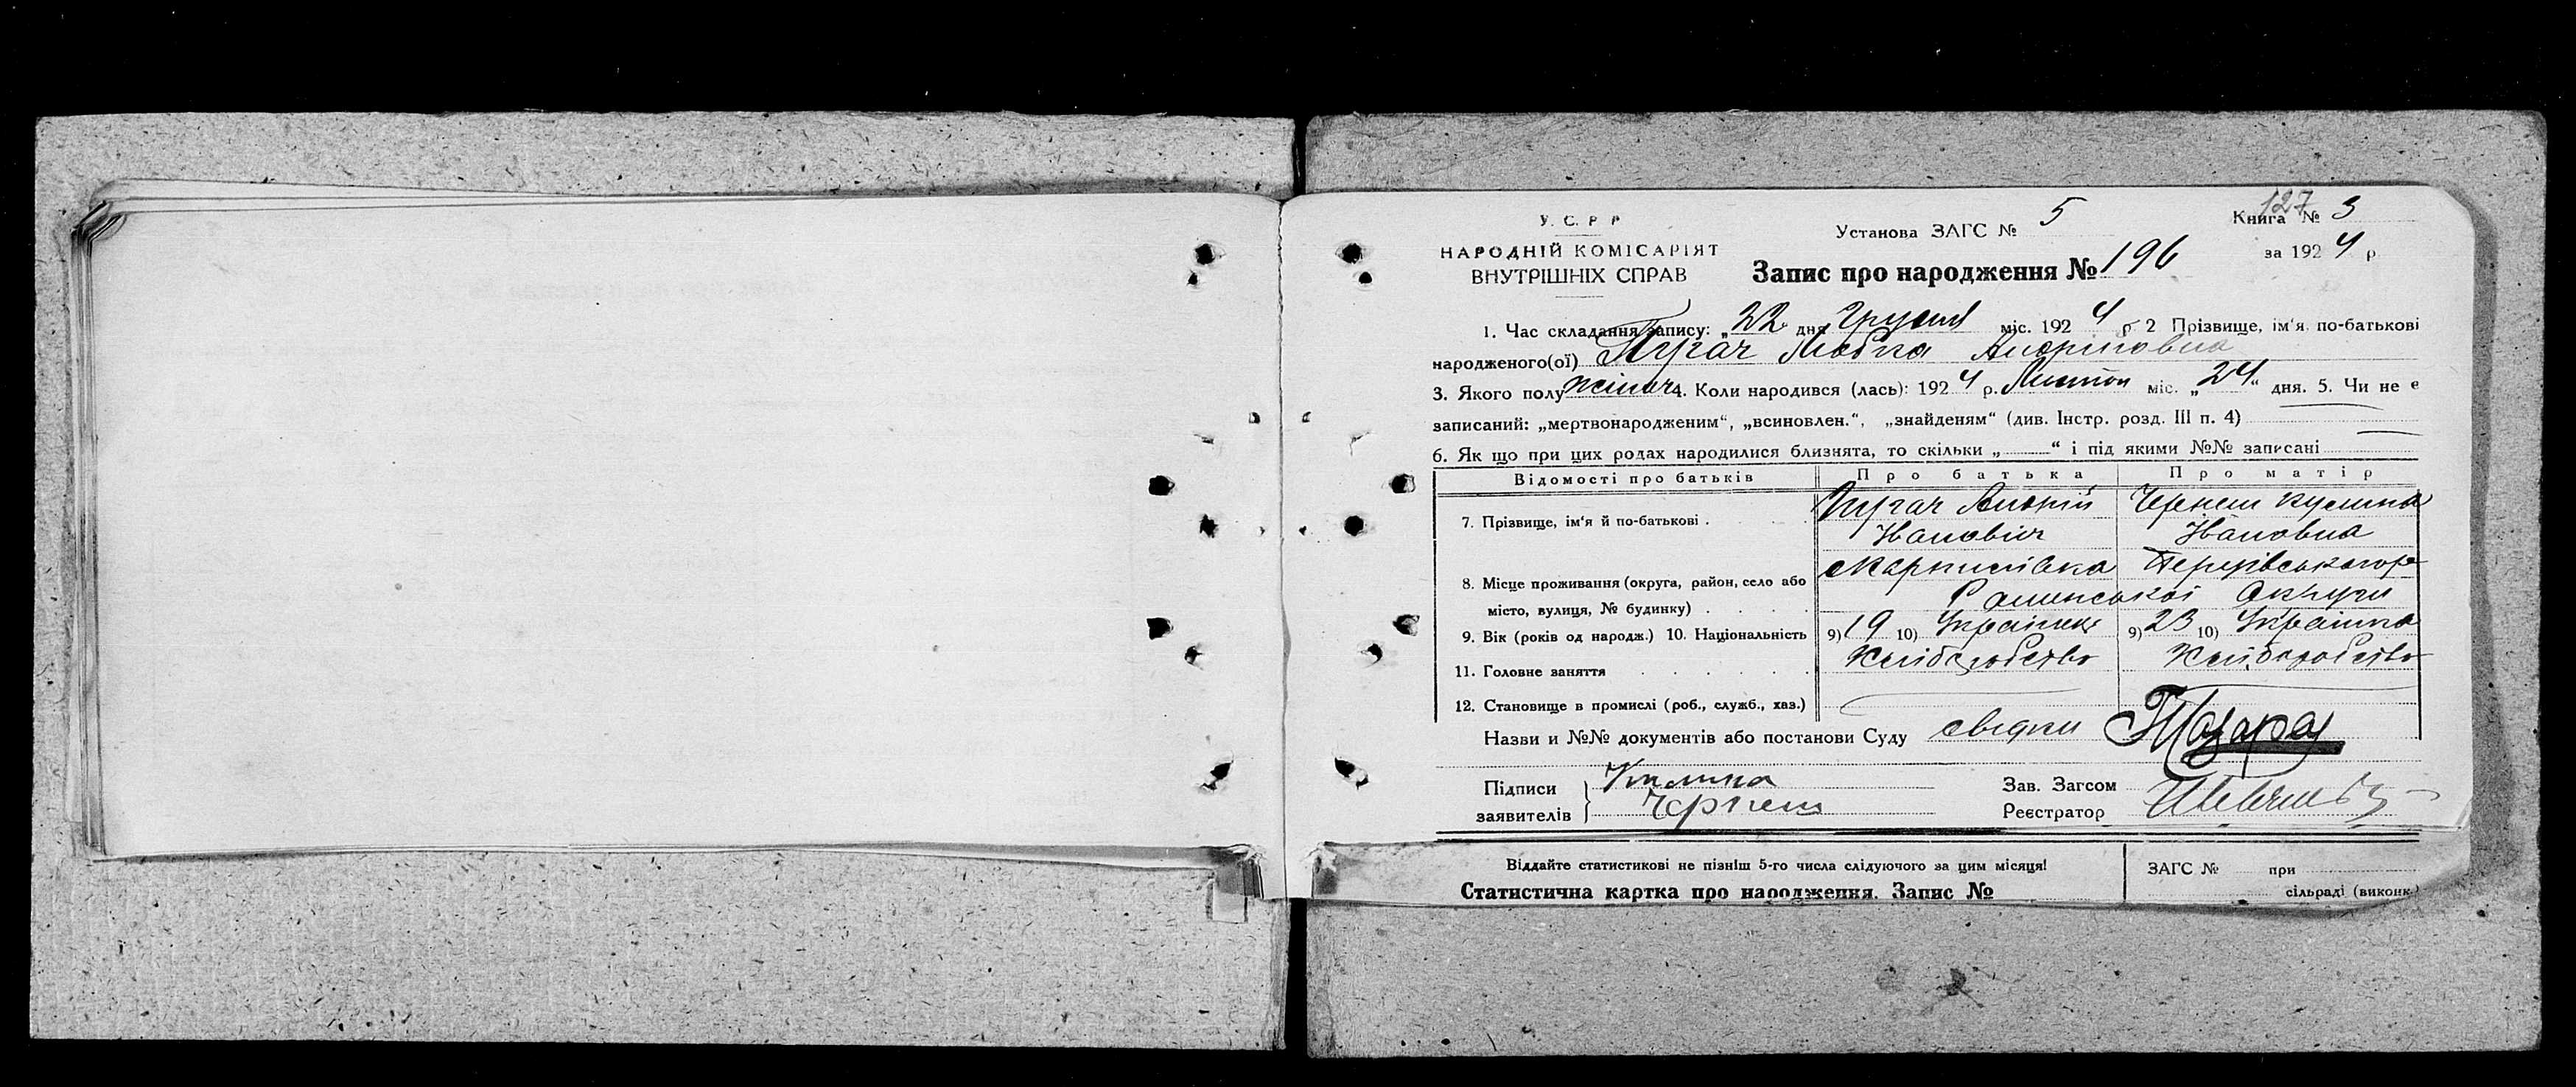 127
У. С. Р Р
НАРОДНІЙ КОМІСАРІЯТ
ВНУТРІШНІХ СПРАВ
Установа ЗАГС № 5
Книга № 3
за 1924 р
Запис про народження № 196
1. Час складання запису: „22" дня Грудня міс. 1924 р 2 Прізвище, ім'я, по-батькові
народженого(ої) Пугач Любка Андріївна
3. Якого полу жіноч 4. Коли народився (лась): 1924 р. Листоп міс. „24" дня. 5. Чи не є
записаний: „мертвонародженим", „всиновлен.", „знайденям" (див. Інстр. розд. III п. 4)
6. Як що при цих родах народилися близнята, то скільки „ " і під якими №№ записані
Відомості про батьків Про батька Про матір
7. Прізвище, ім'я й по-батькові . Пугач Андрій Іванович Черниш Кулина Івановна
8. Місце проживання (округа, район, село або
місто, вулиця, № будинку) . Роменської Округи
9. Вік (років од народж.) 10. Національність 9) 19 10) Українець 9) 23 10) Українка
11. Головне заняття Хліборобство Хліборобство
12. Становище в промислі (роб., служб., хаз.)
Назви и №№ документів або постанови Суду свідки
Підписи
заявителів
Зав. Загсом
Реєстратор
Віддайте статистикові не пізніш 5-го числа слідуючого за цим місяця!
Статистична картка про народження. Запис №
ЗАГС № при
сільраді (виконк.)